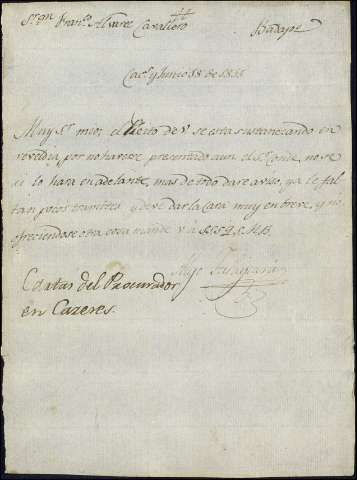 Sr. Dn. Franco. Alvarez Cavallero Badajoz
Cacs. y Junio 18 de 1815
Muy Sr. mio: el Pleito de V se esta sustanciando en
reveldia, por no haverse presentado aun el Sr. Conde, no se
si lo hara en adelante, mas de todo dare aviso, ya le fal
tan pocos tramites y deve dar la cara muy en breve, y no
ofreciendose otra cosa mande V a S. S. S. Q. S. M. B.
Cartas del Procurador
en Cazeres.